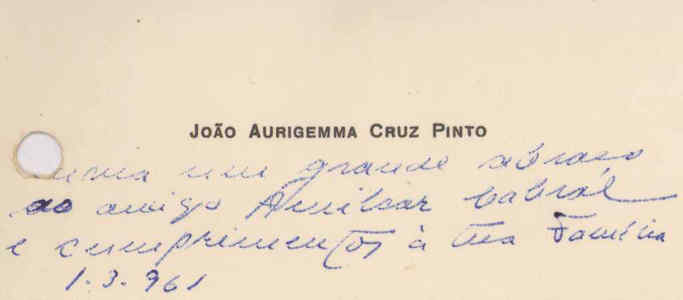 JOÃO AURIGEMMA CRUZ PINTO
envia um grande abraço
ao amigo Amílcar Cabral
e cumprimentos à tua Família
1.3.961